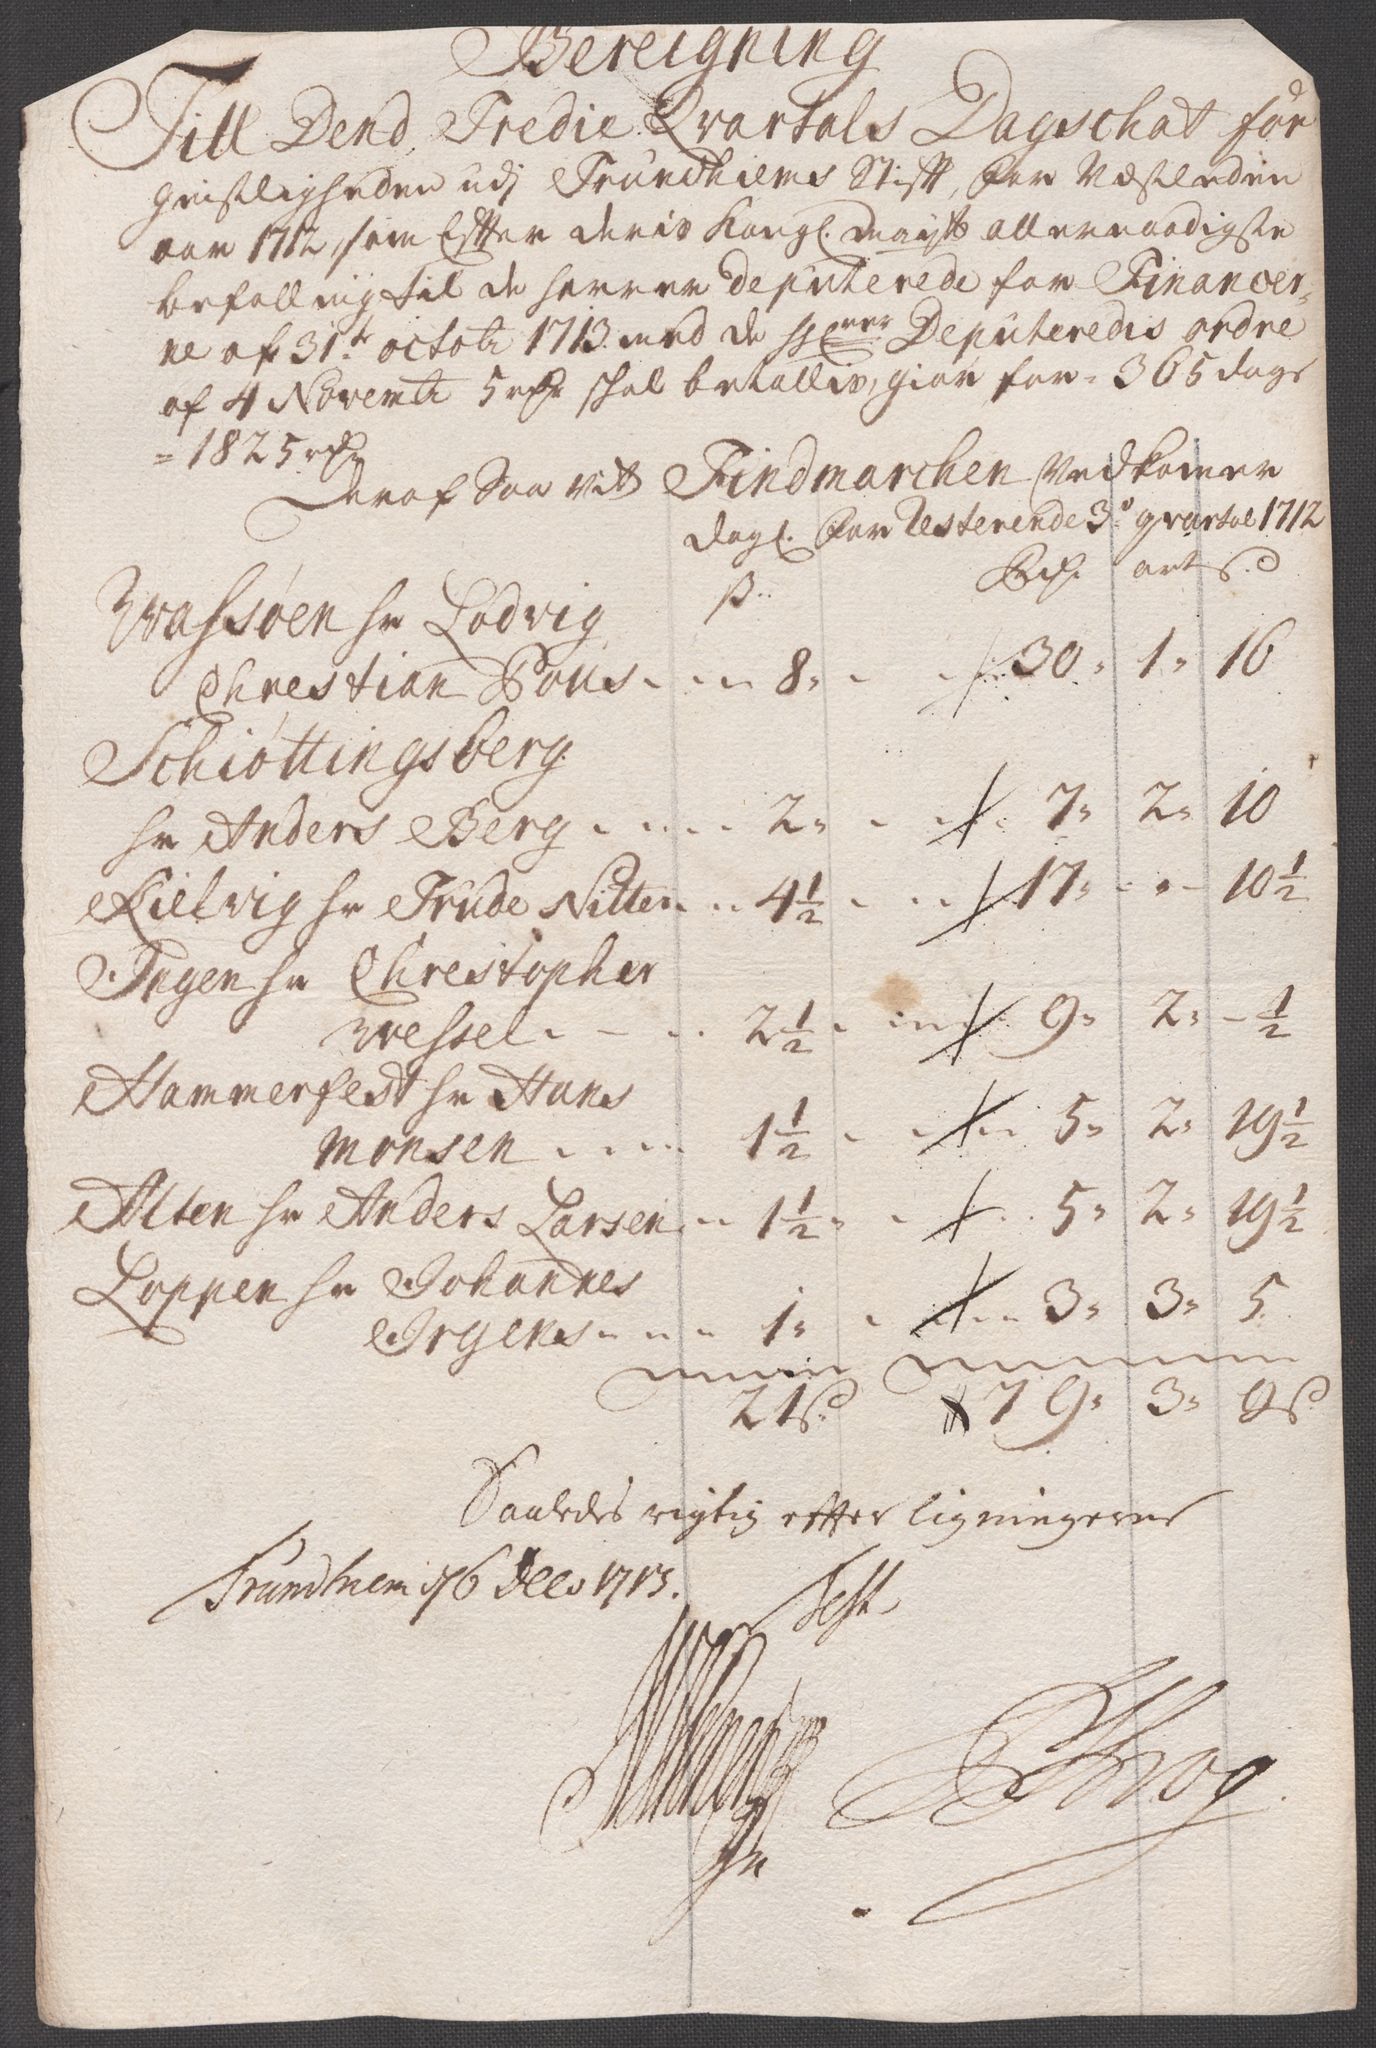 Bereigning
Till Dend Tredie Qvartals Dagschat for
geistligheden udj Trundhiems Stifft, for Nestleden
aar 1712, som Effter deris Kongl. mayts allernaadigste
befalling til de herrer Deputerede for Financer-
ne af 31te octobr 1713 med de Herrer Deputeredis ordre
af 4 Novembr 5 rdr schal betallis, giør for 365 dage
= 1825 rdr
Deraf Saa vit Findmarchen Vedkomer
dagl. for Resterende 3o qvartal 1712
ß.. Rdr. ort s.
Wassøen hr Lodvig
Chrestian Pous 8 = 30 = 1 = 16
Schiøttingsberg
hr Anders Berg 2 = 7 = 2 = 10
Kielvig hr Trude Nitter 4 1/2 17 = - 10 1/2
Ingen hr Christopher
Wessel 2 1/2 9 = 2 = - 1/2
Hammerfest hr Hans
Monsen 1 1/2 5 = 2 = 19 1/2
Alten hr Anders Larsen 1 1/2 5 = 2 = 19 1/2
Loppen hr Johannes
Irgens 1 = 3 = 3 = 5
21 s. 79 = 3 = 9 s.
Saaledes rigtig effter ligningerne
Trundhiem d 16 Dec 1713.
Test